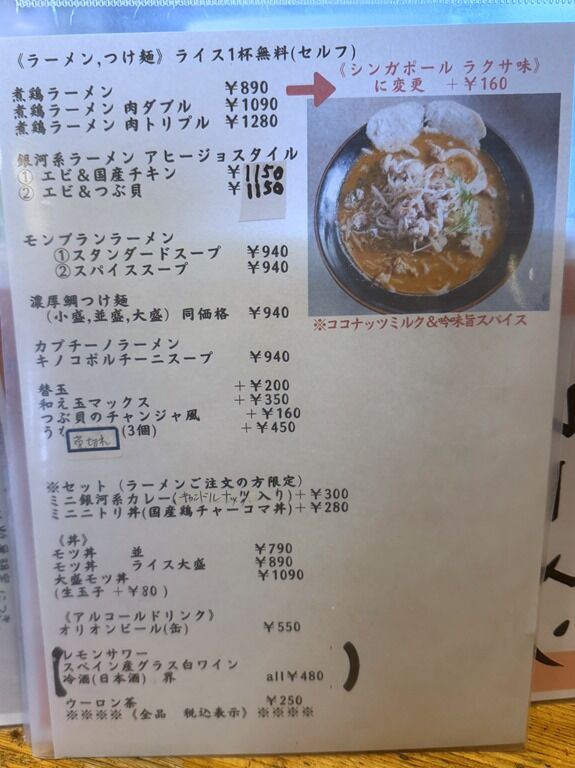 《ラーメン,つけ麺》ライス1杯無料(セルフ)
煮鶏ラーメン ¥890
煮鶏ラーメン 肉ダブル ¥1090
煮鶏ラーメン 肉トリプル ¥1280
《シンガポール ラクサ味》
に変更 +¥160
銀河系ラーメン アヒージョスタイル
① エビ&国産チキン ¥1150
② エビ&つぶ貝 ¥1150
モンブランラーメン
①スタンダードスープ ¥940
②スパイススープ ¥940
※ココナッツミルク&吟味旨スパイス
濃厚鯛つけ麺
(小盛,並盛,大盛) 同価格 ¥940
カプチーノラーメン
キノコポルチーニスープ ¥940
替玉 +¥200
和え玉マックス +¥350
つぶ貝のチャンジャ風 +¥160
う (3個) +¥450
売切れ
※セット (ラーメンご注文の方限定)
ミニ銀河系カレー(キャンドルナッツ入り)+¥300
ミニニトリ丼(国産鶏チャーコマ丼)+¥280
《丼》
モツ丼 並 ¥790
モツ丼 ライス大盛 ¥890
大盛モツ丼 ¥1090
(生玉子 +¥80)
《アルコールドリンク》
オリオンビール(缶) ¥550
レモンサワー
スペイン産グラス白ワイン
冷酒(日本酒) 界 all¥480
ウーロン茶 ¥250
※※※※《全品 税込表示》※※※※